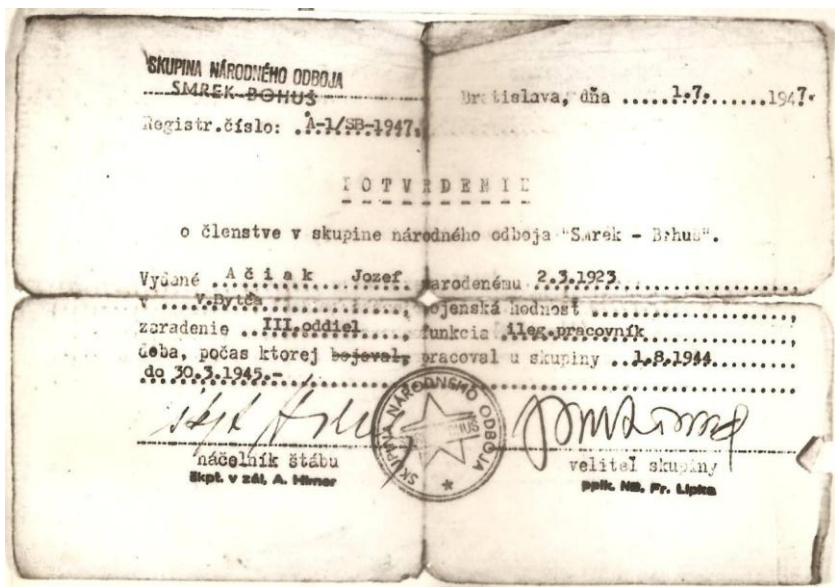 SKUPINA NÁRODNÉHO ODBOJA
SMREK-BOHUŠ
Bratislava, dňa .....1.7.......1947.
Registr.číslo: .A-1/SB-1947.
POTVRDENIE
o členstve v skupine národného odboja "Smrek - Bohuš".
Vydané ..Ačiak Jozef. narodenému .2.3.1923
v ....V.Bytča............, vojenská hodnosť ..................,
zaradenie ..III.oddiel...., funkcia .ileg.pracovník
doba, počas ktorej bojoval, pracoval u skupiny ..1.8.1944
do 30.3.1945.-
SKUPINA NÁRODNÉHO ODBOJA
náčelník štábu
velitel skupiny
škpt. v zál. A. Himer
pplk. NB. Fr. Lipka